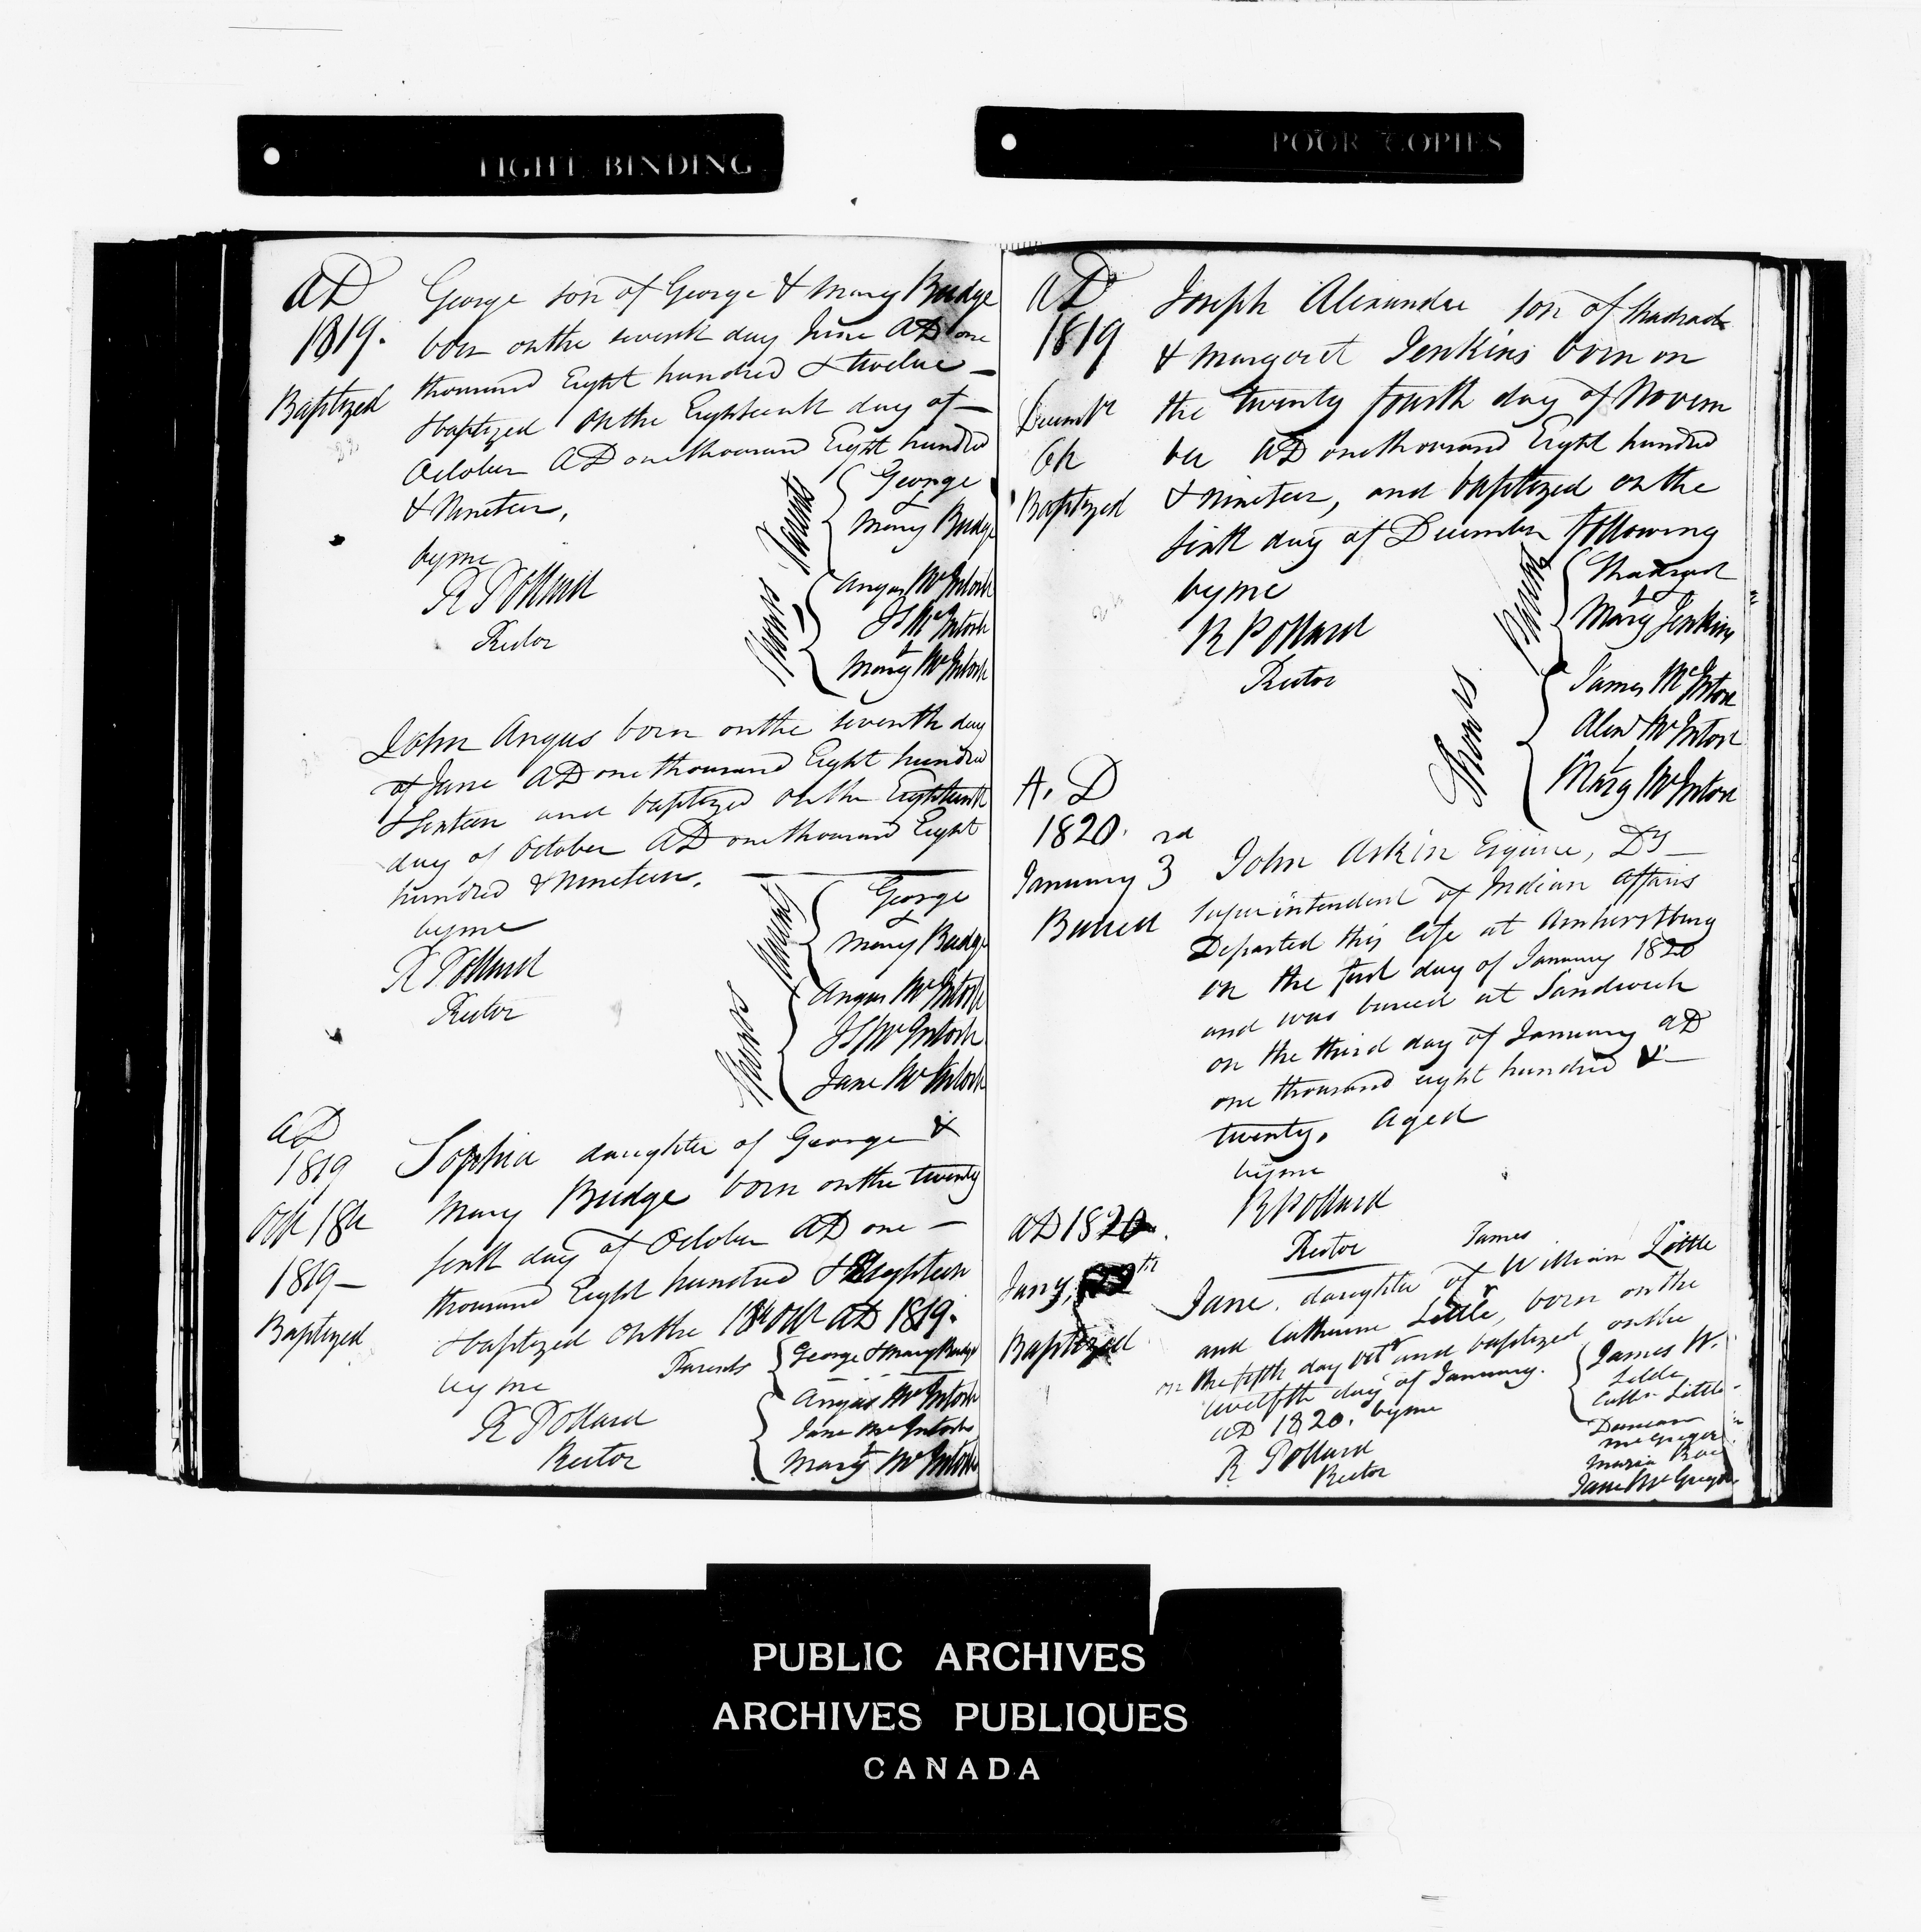 TIGHT BINDING
POOR COPIES
AD
1819.
Baptized
George son of George & Mary Budge
born on the seventh day June AD one
thousand Eight hundred & twelve —
& baptized on the Eighteenth day of —
October AD one thousand Eight hundred
& Nineteen,
by me
R Pollard
Rector
Parents
George
&
Mary Budge
Sponsors
Angus McIntosh
JS McIntosh
&
Mary McIntosh
John Angus born on the seventh day
of June AD one thousand Eight hundred
& Sixteen and baptized on the Eighteenth
day of October AD one thousand Eight
hundred & Nineteen.
by me
R Pollard
Rector
Parents
George
&
Mary Budge
Sponsors
Angus McIntosh
JS McIntosh
Jane McIntosh
AD
1819
Octr 18th
1819 —
Baptized
Sophia daughter of George &
Mary Budge born on the twenty
sixth day of October AD one —
thousand Eight hundred & Eighteen
& baptized on the 18th Octr AD 1819.
by me
R Pollard
Rector
Parents
George & Mary Budge
Angus McIntosh
Jane McIntosh
&
Mary McIntosh
AD
1819
Decembr
6th
Baptized
Joseph Alexander son of Shadrach
& Margaret Jenkins born on
the twenty fourth day of Novem
ber AD one thousand Eight hundred
& nineteen, and baptized on the
sixth day of December following
by me
R Pollard
Rector
Parents
Shadrach
&
Mary Jenkins
Sponsors
James McIntosh
Alexr McIntosh
&
Mary McIntosh
A. D
1820.
January 3rd
Buried
John Askin Esquire, Dy —
Superintendent of Indian Affairs
Departed this life at Amherstburg
on the first day of January 1820
and was buried at Sandwich
on the third day of January AD
one thousand eight hundred & —
twenty. Aged
by me
R Pollard
Rector
AD 1820.
Jany,
Baptized
James
Jane. daughter of William Little
and Catherine Little, born on the
on the fifth day Octr and baptized on the
twelfth day of January.
AD 1820. by me
R Pollard
Rector
James W.
Little
Cathn Little
Duncan
McGregor
Maria
Jane McGregor
PUBLIC ARCHIVES
ARCHIVES PUBLIQUES
CANADA